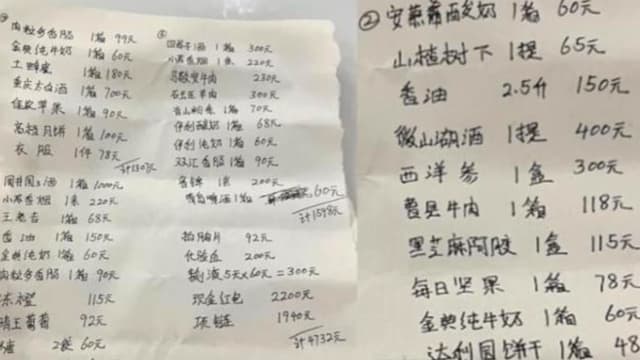 肉粒多香肠 1箱 99元
金典纯牛奶 1箱 60元
土蜂蜜 1箱 180元
重庆太白酒 1箱 700元
1箱 90元
高档月饼 1箱 100元
衣服 1件 78元
计1307元
国井国8酒 1箱 1000元
小苏香烟 1条 220元
王老吉 1箱 68元
香油 1箱 150元
金典纯牛奶 1箱 60元
肉粒多香肠 1箱 90元
115元
晴王葡萄 92元
2提 60元
③
1箱 300元
小苏香烟 1条 220元
牛肉 230元
羊肉 300元
1箱 70元
伊利酸奶 1箱 68元
伊利纯奶 1箱 60元
双汇香肠 1箱 90元
1条 200元
青岛啤酒 1箱 60元
计1598元
拍胸片 92元
化验血 200元
输液5天×60元=300元
现金红包 2200元
项链 1940元
计4732元
② 安慕希酸奶 1箱 60元
山楂树下 1提 65元
香油 2.5升 150元
微山湖酒 1提 400元
西洋参 1盒 300元
曹县牛肉 1箱 118元
黑芝麻阿胶 1盒 115元
每日坚果 1箱 78元
金典纯牛奶 1箱 60元
达利园饼干 1箱 48